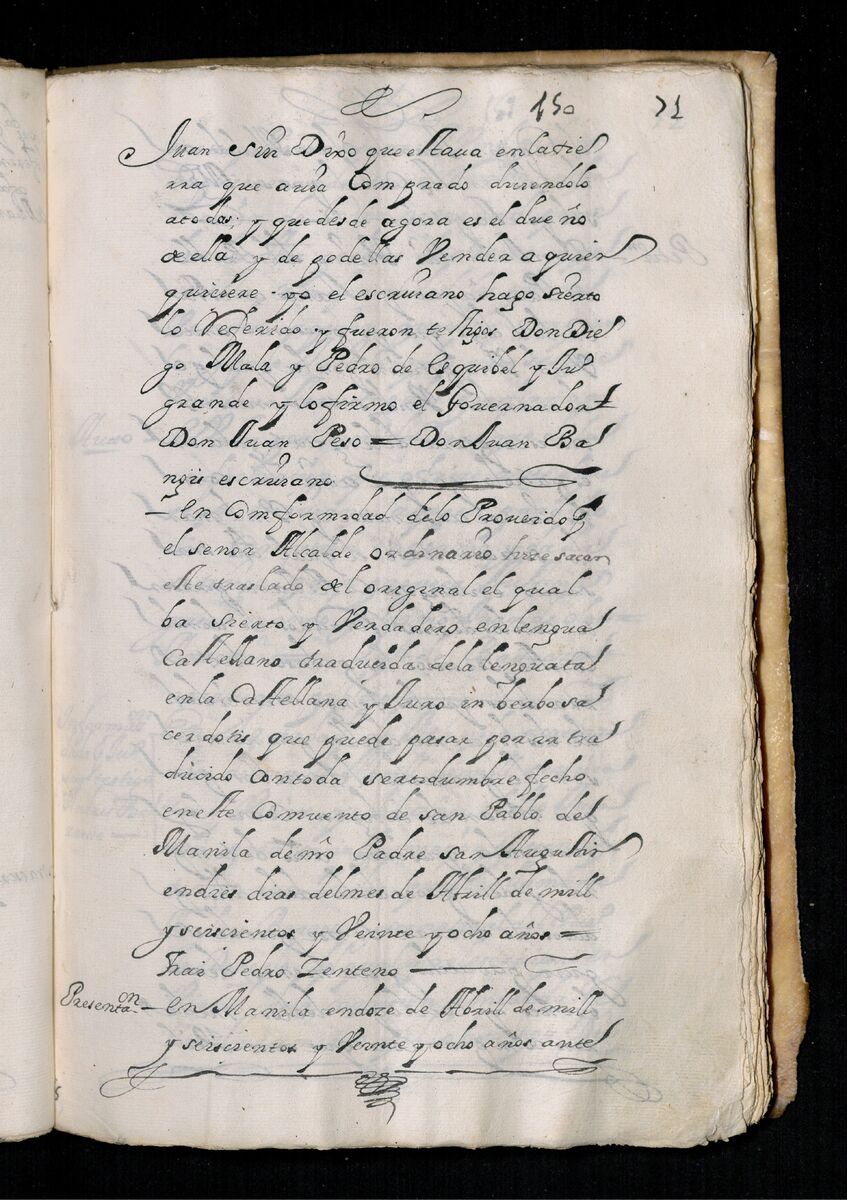 150 71
Juan Sun Dixo que estaua en la tie
rra que auia Comprado disiendolo
a todos; y que desde agora es el dueño
de ella y de podellas Vender a quien
quiciere. yo el escriuano hago sierto
lo Referido y fueron testigos Don Die
go Mala y Pedro de Esquibel y Juº
grande y lo firmo el Gouernador
Don Juan Peso = Don Juan Ba
ngis escriuano
- En Comformidad de lo Proueido
el señor Alcalde ordinario hize sacar
este traslado del original el qual
ba sierto y Verdadero en lengua
Castellano traducida de la lengua ta
en la Castellana y Juro in berbo sa
cerdotis que puede pasar por
ducido con toda sertidumbre fecho
en este Comuento de san Pablo de
Manila de nrõ Padre san Augustin
en dies dias del mes de Abrill de mill
y seiscientos y Veinte y ocho años =
Frai Pedro Zenteno
Presentaon - En Manila en doze de Abrill de mill
y seiscientos y Veinte y ocho años ante